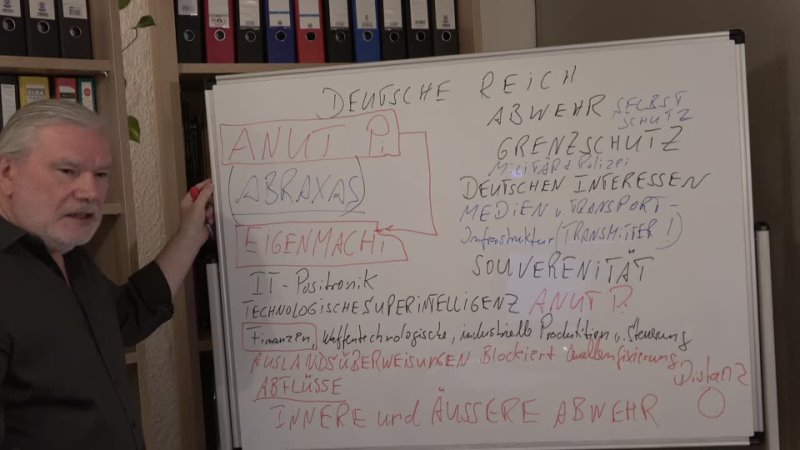 DEUTSCHE REICH
ANUT Pi
(ABRAXAS)
EIGENMACHT
IT-Positronik
TECHNOLOGISCHE SUPERINTELLIGENZ ANUT P.
ABWEHR SELBST
SCHUTZ
GRENZSCHUTZ
MILITÄR + Polizei
DEUTSCHEN INTERESSEN
MEDIEN u. TRANSPORT-
Infrastruktur (TRANSMITTER!)
SOUVERENITÄT
Finanzen, Waffentechnologische, industrielle Produktion u. Steuerung
AUSLANDSÜBERWEISUNGEN Blockiert Quellenfixierung
ABFLÜSSE
Distanz
INNERE und ÄUSSERE ABWEHR